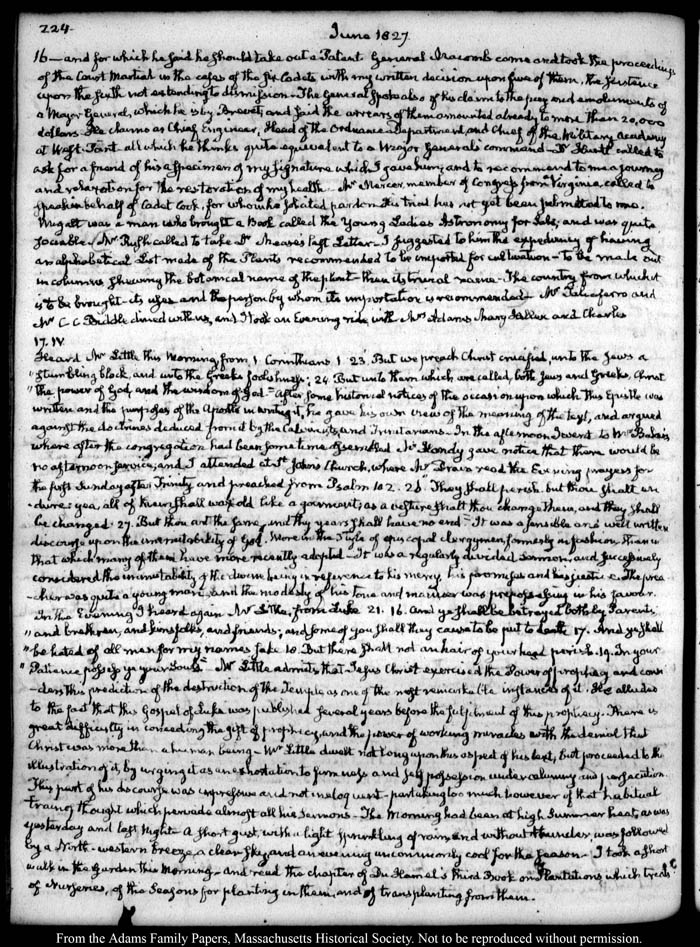 224.
June 1827
16 — and for which he said he should take out a Patent General Macomb came and took the proceedings
of the Court Martial in the cases of the six Cadets with my written decision upon five of them, the sentence
upon the sixth not extending to dismission — The General spoke also of his claim to the pay and emoluments of
a Major General, which he is by Brevet; and said the arrears of them amounted already to more than 20,000
dollars — He claims as Chief Engineer, Head of the Ordnance Department, and Chief of the Military Academy
at West-Point all which he thinks quite equivalent to a Major General's command — Dr Huntt called to
ask for a friend of his a specimen of my signature which I gave him; and to recommend to me a journey
and relaxation for the restoration of my health — Mr Mercer, member of Congress from Virginia called to
speak in behalf of Cadet Cook, for whom he solicited pardon. His trial has not yet been submitted to me.
was a man who brought a Book called the Young Ladies Astronomy for sale; and was quite
sociable — Mr Rush called to take Dr Mease's last Letter — I suggested to him the expediency of having
an alphabetical List made of the Plants recommended to be imported for cultivation — to be made out
in columns shewing the botanical name of the plant — then its trivial name — The country from which it
is to be brought — its uses and the person by whom its importation is recommended — Mr Taliaferro and
Mr C C Biddle dined with us, and I took an Evening ride with Mrs Adams Mary and Charles
17. IV.
Heard Mr Little this Morning, from 1 Corinthians 1. 23 "But we preach Christ crucified, unto the Jews a
"stumbling block, and unto the Greeks foolishness; 24. But unto them which are called, both Jews and Greeks, Christ
"the power of God, and the wisdom of God." After some historical notices of the occasion upon which this Epistle was
written and the purposes of the Apostle in writing it, he gave his own views of the meaning of the text, and argued
against the doctrines deduced from it by the Calvinists and Trinitarians — In the afternoon I went to Mr Baker's
where after the congregation had been some time assembled Mr Handy gave notice that there would be
no afternoon service; and I attended at St. Johns Church, where Mr read the Evening prayers for
the first Sunday after Trinity and preached from Psalm 102. 26 "They shall perish, but thou shalt en-
"dure: yea, all of them shall wax old like a garment; as a vesture shalt thou change them, and they shall
be changed: 27. But thou art the same, and thy years shall have no end" — It was a sensible and well written
discourse upon the immutability of God. More in the style of episcopal clergymen, formerly in fashion, than in
that which many of them have more recently adopted — It was a regularly divided sermon, and successively
considered the immutability of the divine being in reference to his mercy, his promises and his justice. The prea-
-cher was quite a young man, and the modesty of his tone and manner was prepossessing in his favour.
In the Evening I heard again Mr Little, from Luke 21. 16. And ye shall be betrayed both by Parents,
"and brethren, and kinsfolks, and friends; and some of you shall they cause to be put to death 17. And ye shall
"be hated of all men for my names sake 18. But there shall not an hair of your head perish. 19. In your
"Patience possess ye your Souls" — Mr Little admits that Jesus Christ exercised the Power of prophecy and consi-
-ders this prediction of the destruction of the Temple as one of the most remarkable instances of it. He alluded
to the fact that this Gospel of Luke was published several years before the fulfilment of this prophecy. There is
great difficulty in conceding the gift of prophecy, and the power of working miracles with the denial that
Christ was more than a human being — Mr Little dwelt not long upon this aspect of his text, but proceeded to the
illustration of it, by urging it as an exhortation to firmness and self possession under calumny and persecution.
This part of his discourse was impressive and not ineloquent — partaking too much however of that habitual
train of thought which pervade almost all his sermons — The Morning had been at high Summer heat, as was
yesterday and last Night. A short gust, with a light sprinkling of rain, and without thunder, was followed
by a North-western breeze, a clear sky, and an evening uncommonly cool for the season — I took a short
walk in the Garden this Morning — and read the chapter of Du Hamel's third Book on Plantations which treats
of Nurseries, of the Seasons for planting in them, and of transplanting from them.
From the Adams Family Papers, Massachusetts Historical Society. Not to be reproduced without permission.